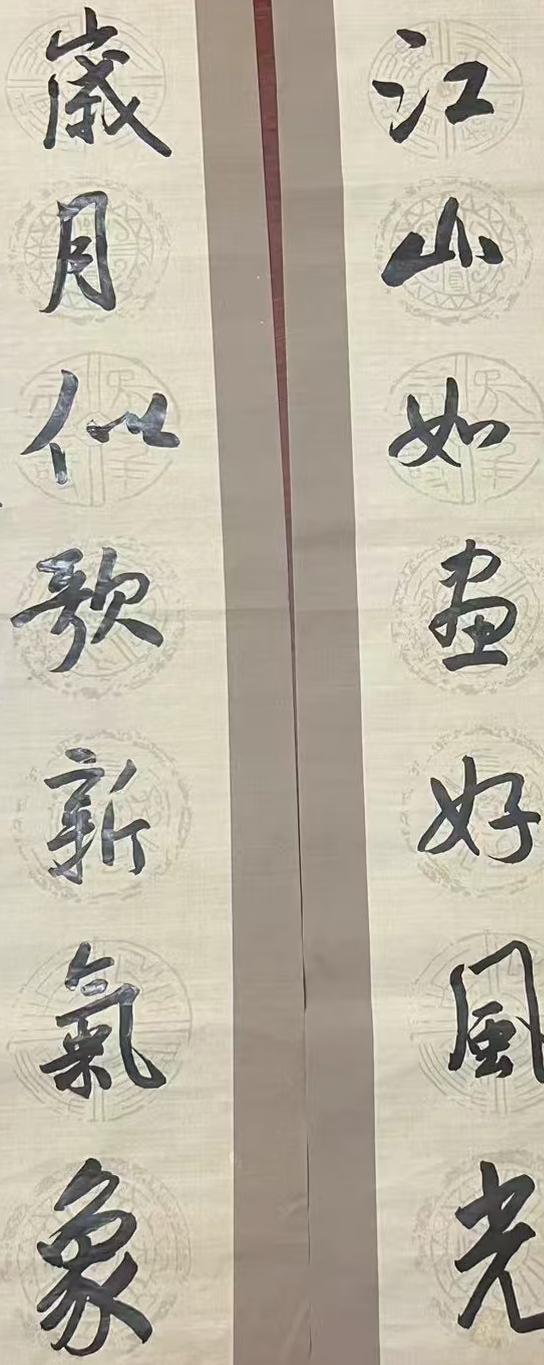 江山如畫好風光
歲月似歌新氣象